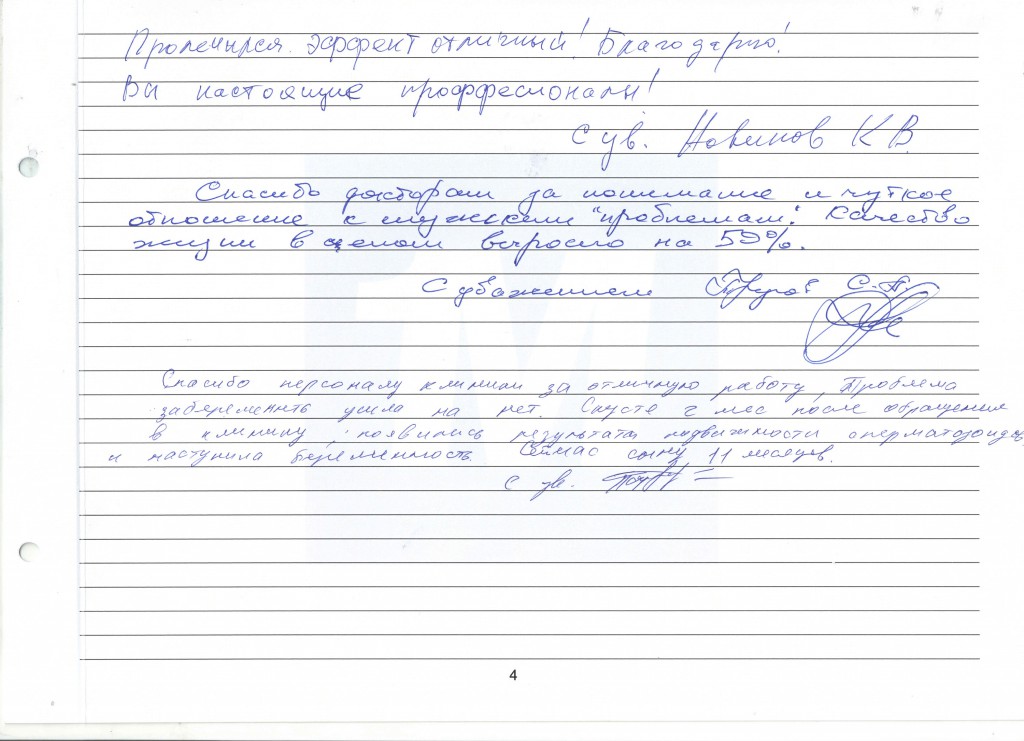 Пролечился. Эффект отличный! Благодарю!
Вы настоящие проффесионалы!
С ув. Новиков К В.
Спасибо докторам за понимание и чуткое
отношение к мужским "проблемам". Качество
жизни в целом выросло на 59%.
С уважением С.А.
Спасибо персоналу клиники за отличную работу, Проблема
забеременить ушла на нет. Спустя 2 мес после обращения
в клинику, появились результаты подвижности сперматозоидов
и наступила беременность. Сейчас сыну 11 месяцев.
С ув.
4